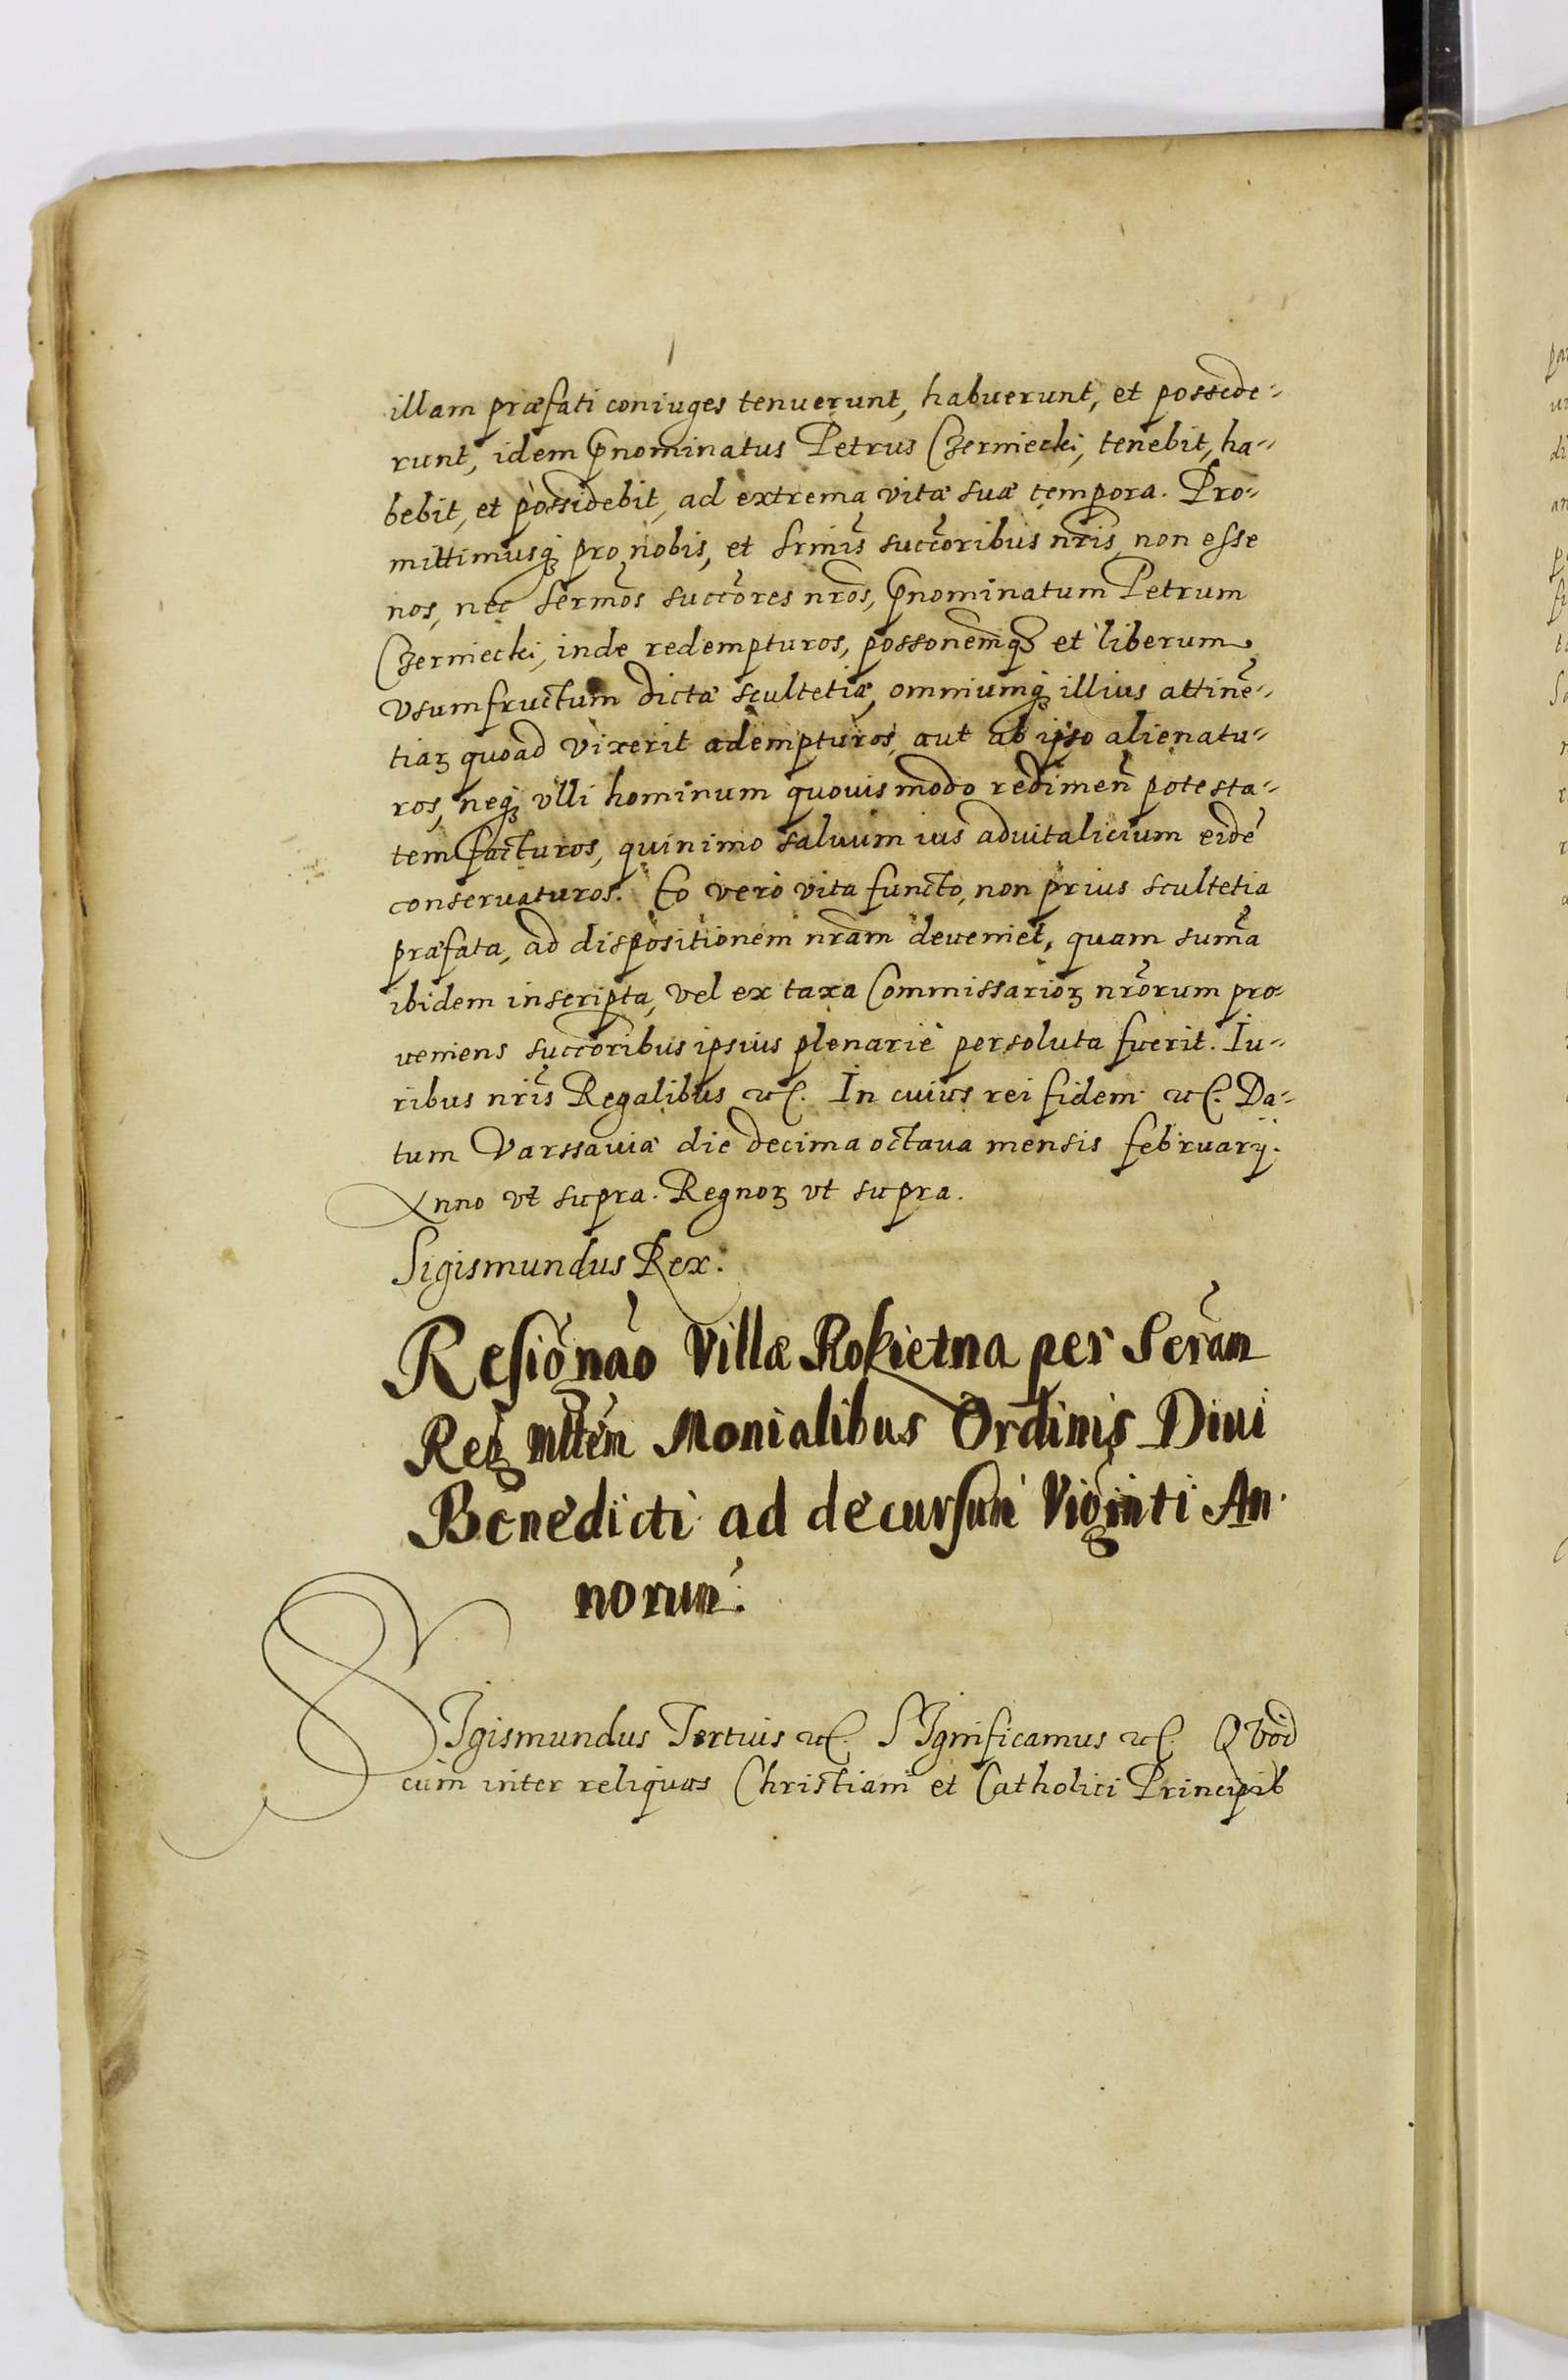 illam præfati coniuges tenuerunt, habuerunt, et possede-
runt, idem p̄nominatus Petrus Czerniecki, tenebit, ha-
bebit, et possidebit, ad extrema vitæ suæ tempora. Pro-
mittimusq; pro nobis, et Srmis̄ succ̄oribus nr̄is non esse
nos, nec Serm̄os succ̄ores nr̄os, p̄nominatum Petrum
Czerniecki, inde redempturos, posson̄emqꝫ et liberum
vsumfructum dictæ scultetiæ, omniumq; illius attinē-
tiaꝝ quoad vixerit adempturos, aut ab ipso alienatu-
ros, neq; vlli hominum quouis modo redimen̄ potesta-
tem facturos, quinimo saluum ius aduitalicium eidē
conseruaturos. Eo vero vita functo, non prius scultetia
præfata, ad dispositionem nr̄am deueniet, quam sum̄a
ibidem inscripta, vel ex taxa Commissarioꝝ nr̄orum pro-
ueniens succ̄oribus ipsius plenarie persoluta fuerit. Iu-
ribus nr̄is Regalibus etc. In cuius rei fidem etc. Da-
tum Varssauiæ die decima octaua mensis februarij.
Anno vt supra. Regnoꝝ vt supra.
Sigismundus Rex.
Resignāo Villæ Rokietna per Serān
Reg Mttēm Monialibus Ordinis Diui
Benedicti ad decursum Viginti An-
norum.
SIgismundus Tertius etc. SIgnificamus etc. QVod
cum inter reliquas Christiani et Catholici Principis